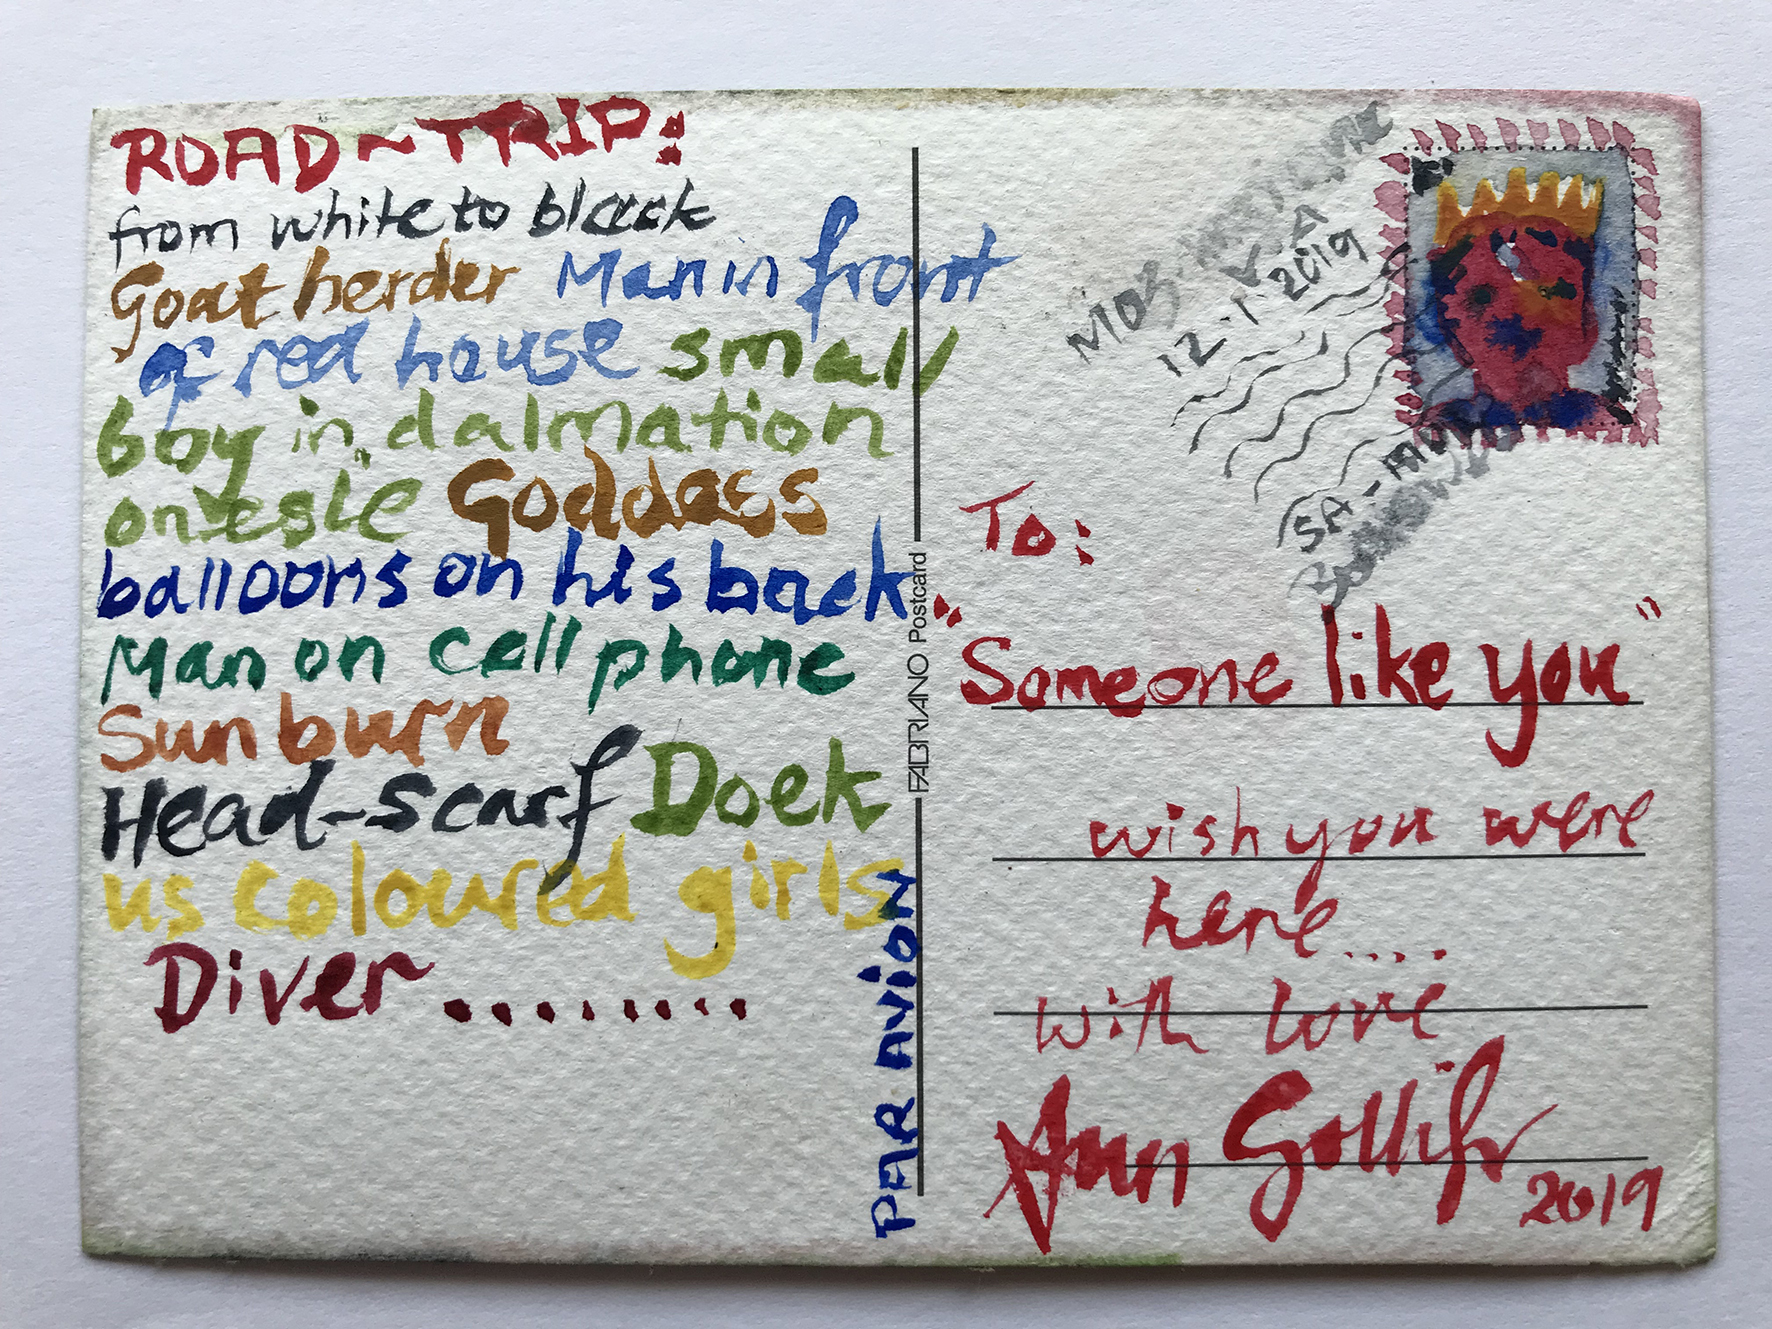 ROAD~TRIP:
from white to black
Goat herder Man in front
of red house small
boy in dalmation
onesie Goddess
balloons on his back
Man on cell phone
Sunburn
Head-scarf Doek
us coloured girls
Diver ........
PAR AVION
FABRIANO Postcard
12.1.2019
SA -
To:
"Someone like you"
wish you were
here.....
with love
Ann Gollifer
2019